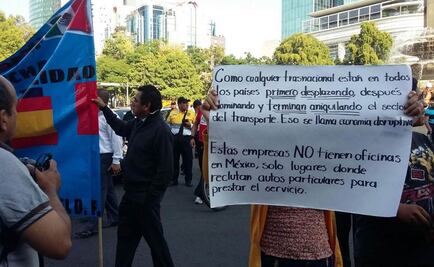 Como cualquier trasnacional estan en todos
los países primero desplazando, después
dominando y terminan aniquilando el sector
del transporte. Eso se llama economía disruptiva
Estas empresas NO tienen oficinas
en México, solo lugares donde
reclutan autos particulares para
prestar el servicio.